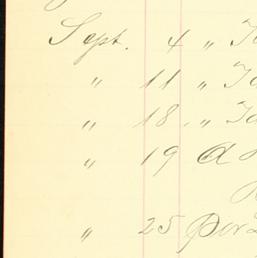 Sept. 4 "
" 11 "
" 18 "
" 19
" 25 Per